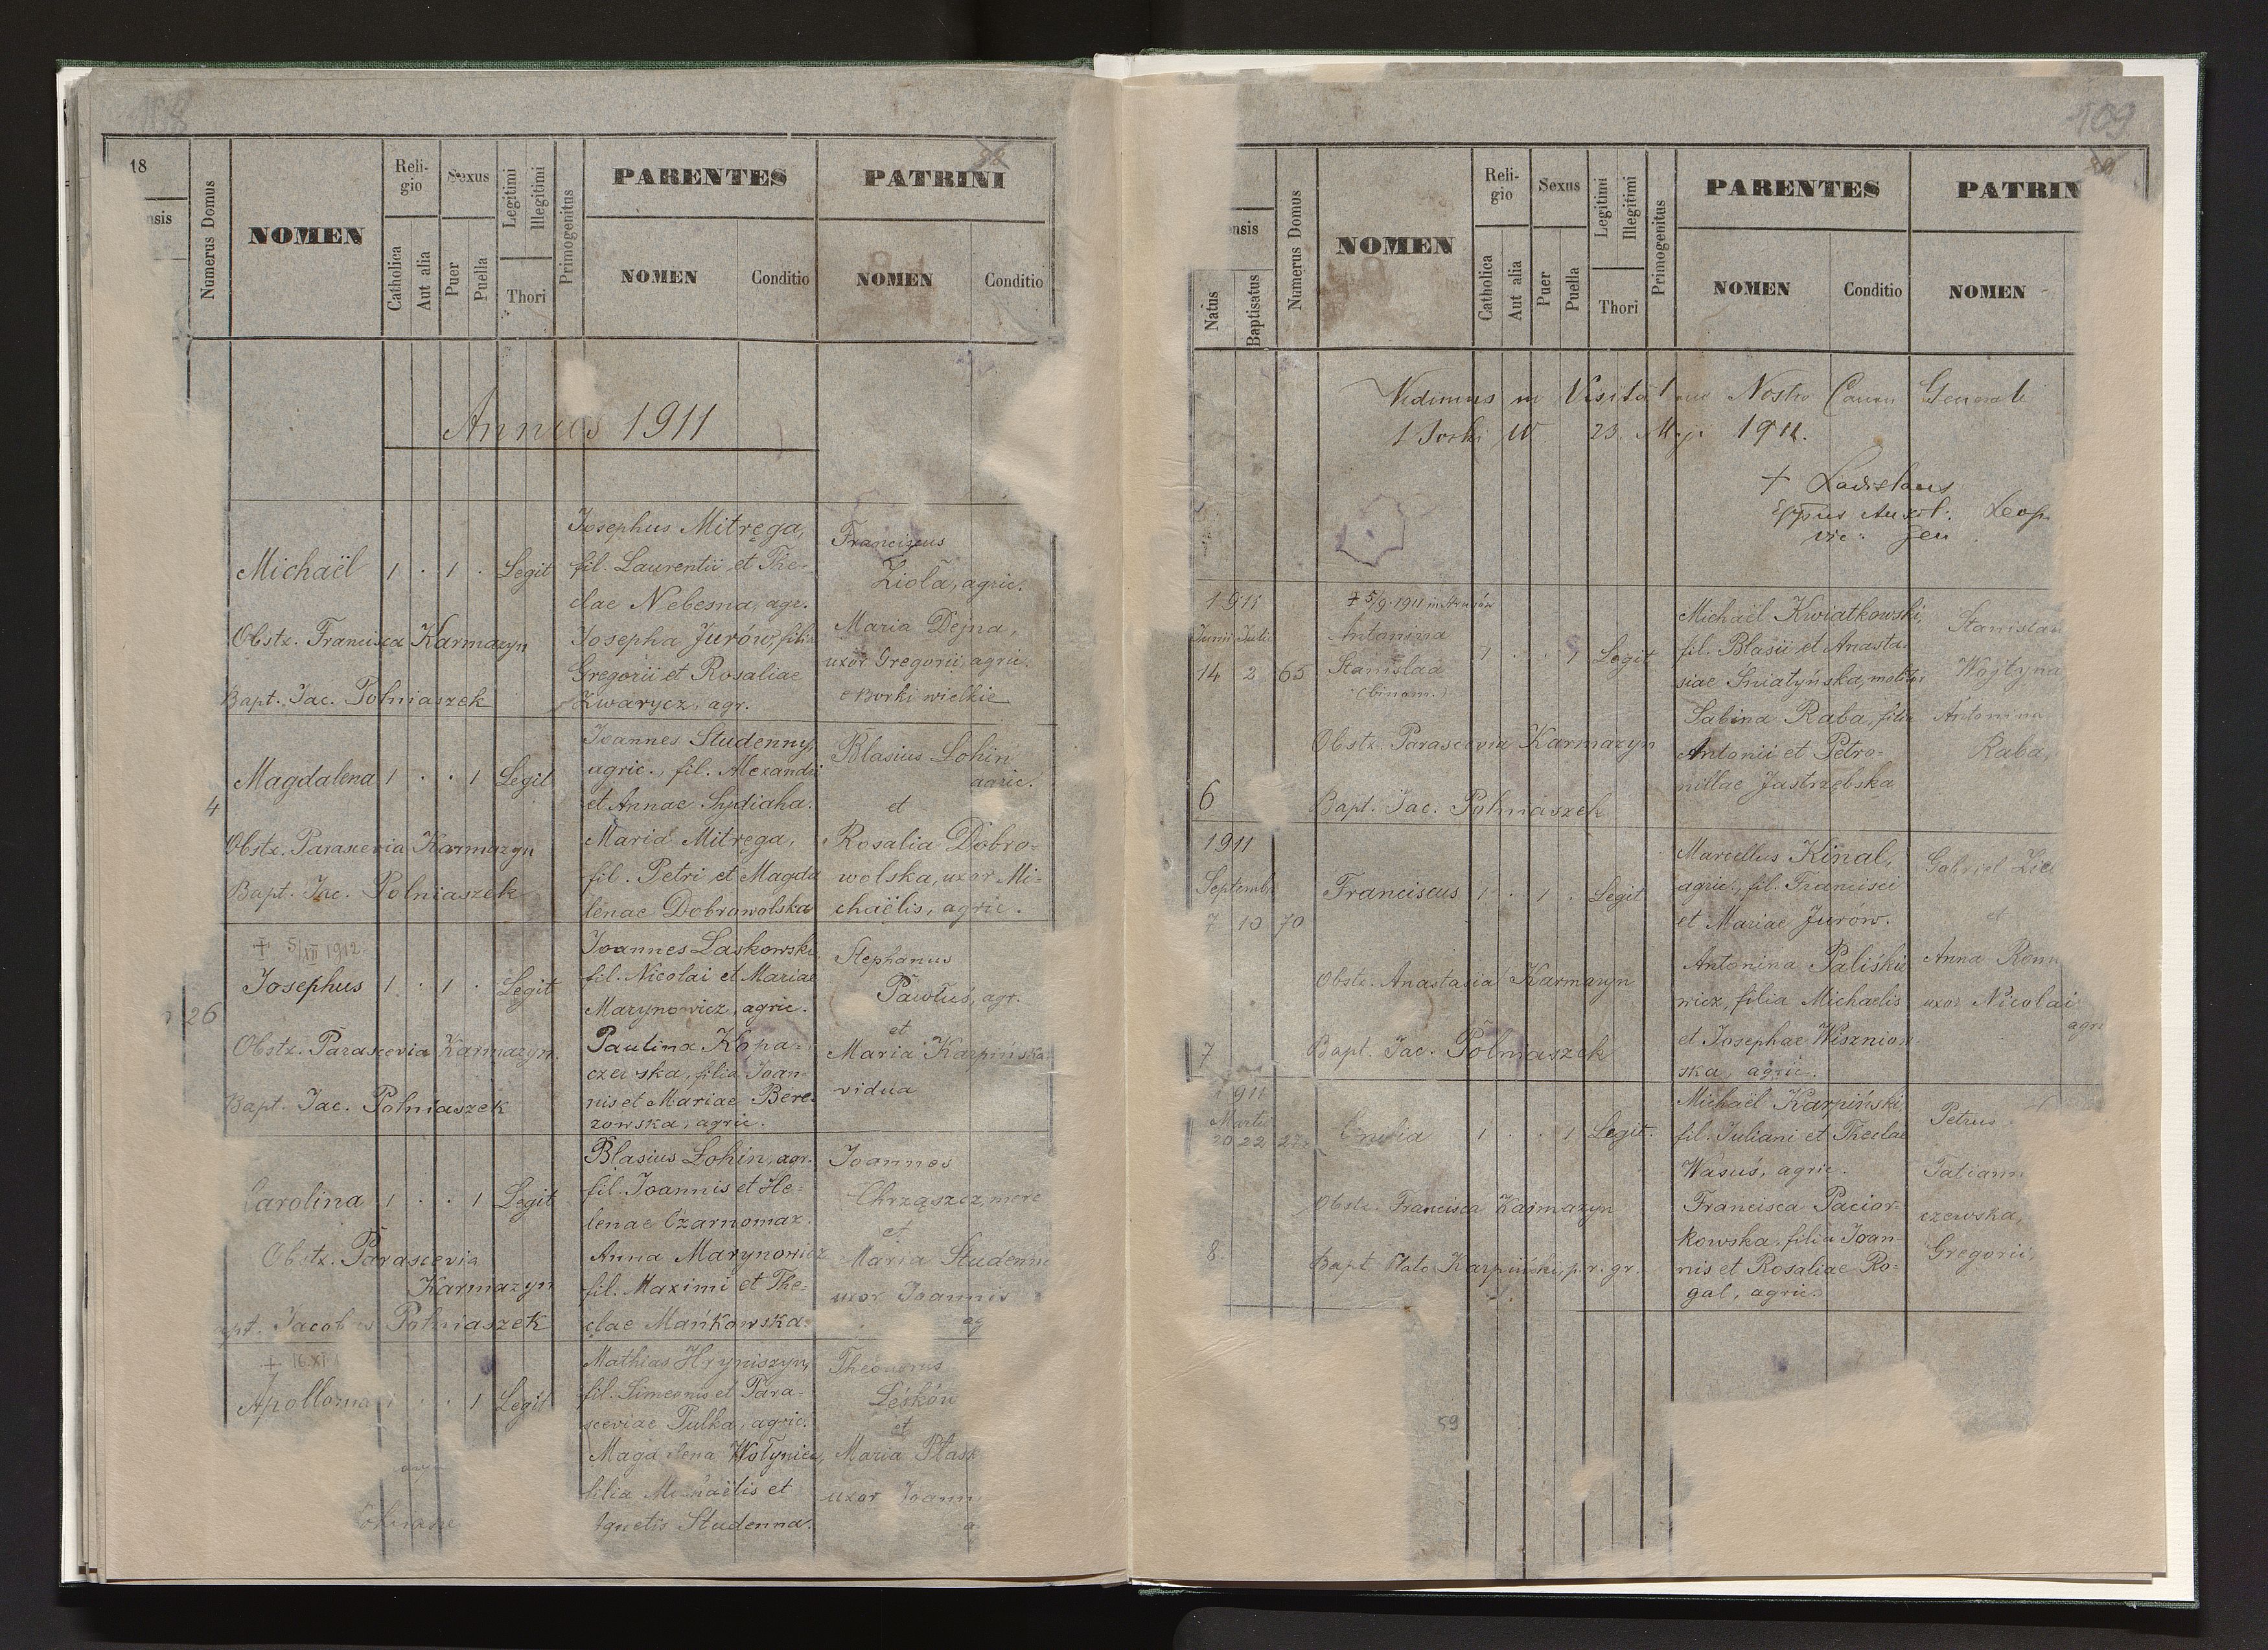 108
18
Numerus Domus
NOMEN
Religio
Catholica
Aut alia
Sexus
Puer
Puella
Legitimi
Illegitimi
Thori
Primogenitus
PARENTES
NOMEN
Conditio
PATRINI
NOMEN
Conditio
Annus 1911
Michaël 1 · 1 · Legit
Obstr. Francisca Karmazyn
Bapt. Jac. Polniaszek
Josephus Mitręga,
fil. Laurentii et The-
clae Nebesna, agr.
Josepha Jurów, filia
Gregorii et Rosaliae
Zwarycz, agr.
Franciscus
Zioła, agric.
Maria Dejna,
uxor Gregorii, agric.
e Borki wielkie
4
Magdalena 1 · · 1 Legit
Obstr. Parascevia Karmazyn
Bapt. Jac. Polniaszek
Joannes Studenny,
agric., fil. Alexandri
et Annae Sydiaha.
Maria Mitręga,
fil. Petri et Magda
lenae Dobrowolska
Blasius Łohin
agric.
et
Rosalia Dobro-
wolska, uxor Mi-
chaëlis, agric.
26
+ 5/XII 1912.
Josephus 1 · 1 · Legit
Obstr. Parascevia Karmazyn.
Bapt. Jac. Polniaszek
Joannes Laskowski
fil. Nicolai et Mariae
Marynowicz, agric.
Paulina Kopa-
czewska, filia Joan-
nis et Mariae Bere-
zowska, agric.
Stephanus
Pawłuś, agr.
et
Maria Karpińska
vidua
Carolina 1 · · 1 Legit
Obstr. Parascevia
Karmazyn
apt. Jacobus Polniaszek
Blasius Łohin, agr.
fil. Joannis et He-
lenae Czarnomaz.
Anna Marynowicz
fil. Maximi et The-
clae Mańkowska.
Joannes
Chrząszcz, merc
et
Maria Studenna
uxor Joannis
ag
+ 16.XI
Apollonia 1 · · 1 Legit
Mathias Hryniszyn,
fil. Simeonis et Para-
sceviae Pulka, agric.
Magdalena Wołyniec,
filia Michaëlis et
Agnetis Studenna.
Theodorus
Leśków
et
Maria Ptasz
uxor Joann
a
109
nsis
Natus
Baptisatus
Numerus Domus
NOMEN
Religio
Catholica
Aut alia
Sexus
Puer
Puella
Legitimi
Illegitimi
Thori
Primogenitus
PARENTES
NOMEN
Conditio
PATRIN
NOMEN
Vidimus in Visitatione Nostra Canon Generali
23. Maji 1912.
+ Ladislaus
Eppus Auxil. Leop.
vic. gen.
1911
Junii Julii
14 2 65
+ 5/9. 1911 in
Antonina
Stanislaa
(binom.)
1 · · 1 Legit
Obstr. Parascevia Karmazyn
6
Bapt. Jac. Polniaszek
Michaël Kwiatkowski,
fil. Blasii et Anasta-
siae Śniatyńska, molitor
Sabina Raba, filia
Antonii et Petro-
nillae Jastrzębska
Stanislau
Wojtyna
Antonina
Raba,
1911
Septembr
7 10 70
Franciscus 1 · 1 · Legit
Obstr. Anastasia Karmazyn
7
Bapt. Jac. Polniaszek
Marcellus Kinal,
agric., fil. Francisci
et Mariae Jurów.
Antonina Paliśkie
wicz, filia Michaelis
et Josephae Wiszniow-
ska, agric.
Gabriel
et
Anna
uxor Nicolai
agri
1911
Martii
20 22
Emilia 1 · · 1 Legit.
Obstr. Francisca Karmazyn
8.
Bapt. Plato Karpiński, p. r. gr.
Michaël Karpiński,
fil. Juliani et Theclae
Wasuś, agric.
Francisca Pacior-
kowska, filia Joan-
nis et Rosaliae Ro-
gal, agric.
Petrus
Tatiann
czewska,
Gregorii,
59